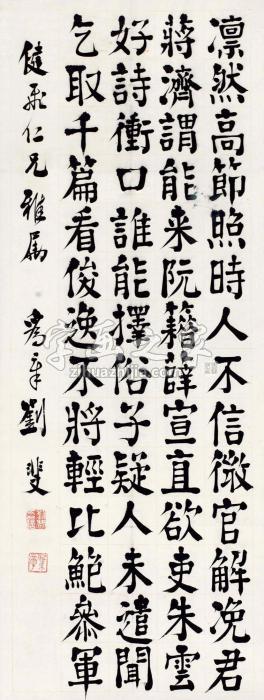 凛然高節照時人不信微官解浼君
蔣濟謂能来阮籍薛宣直欲吏朱雲
好詩衝口誰能擇俗子疑人未遣聞
乞取千篇看俊逸不將輕比鮑叅軍
健飛仁兄雅属 為章劉斐